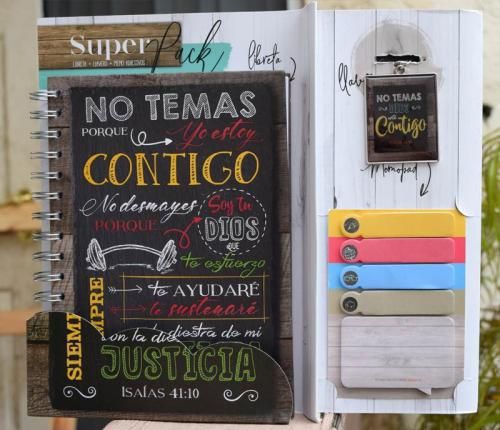 Super Pack
LIBRETA + LLAVERO + MEMO ADHESIVOS
Libreta
NO TEMAS
PORQUE Yo estoy
CONTIGO
No desmayes
PORQUE
Soy tu
DIOS
QUE
te esfuerzo
SIEMPRE
te AYUDARÉ
te sustentaré
con la diestra de mi
JUSTICIA
ISAÍAS 41:10
NO TEMAS
Contigo
Memopad